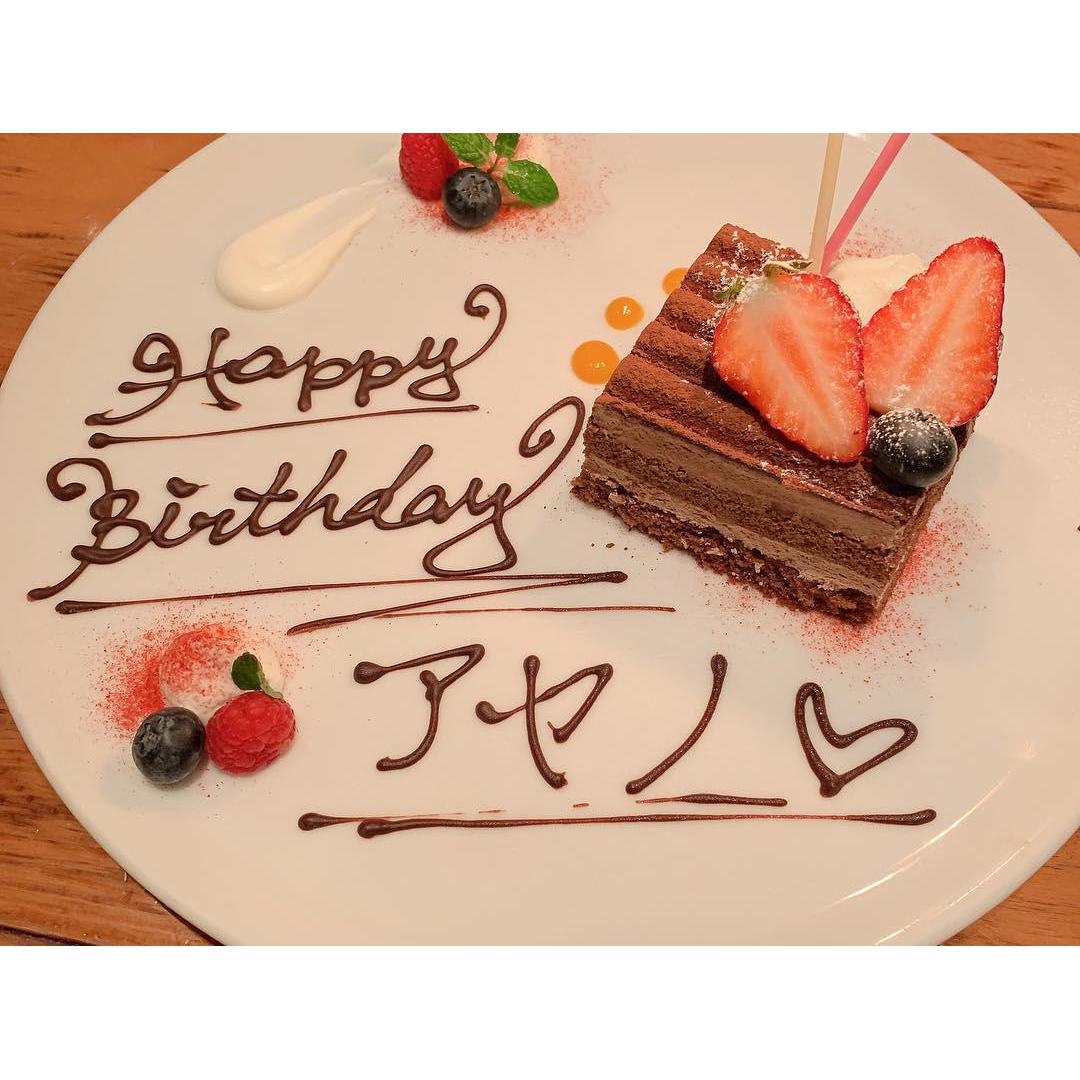 Happy
Birthday
アヤノ♡